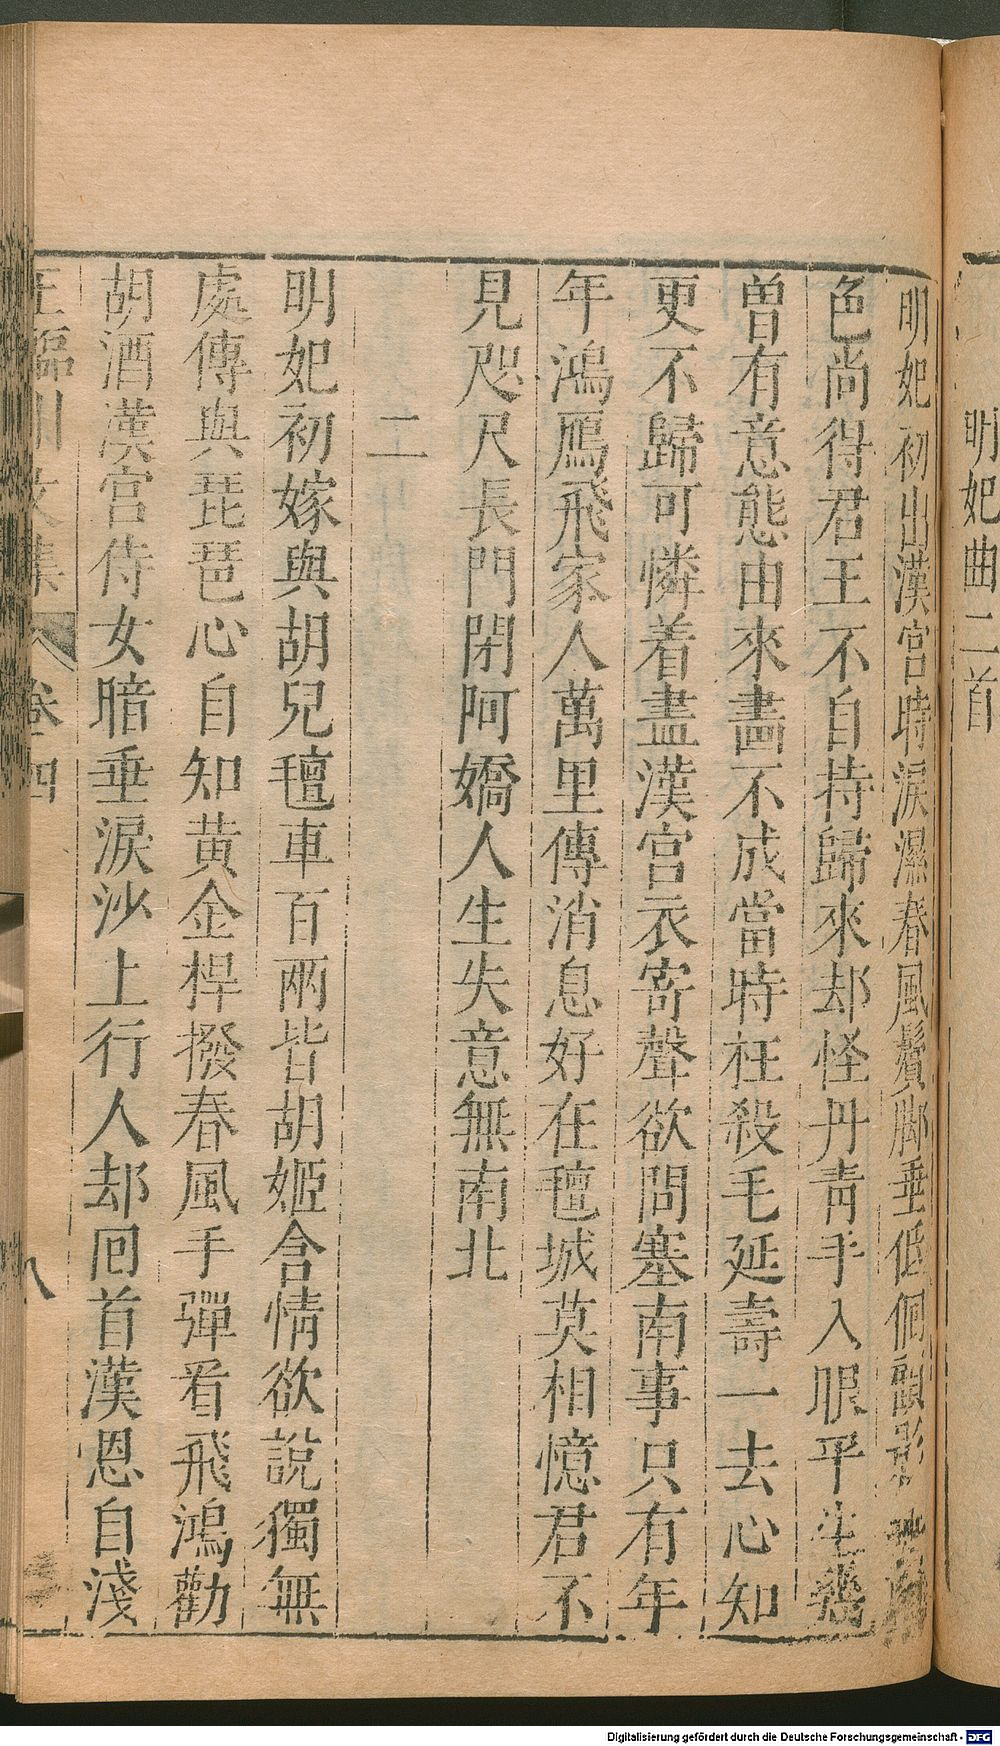 明妃曲二首
明妃初出漢宮時淚濕春風鬢脚垂低佪顧影
色尚得君王不自持歸來却怪丹青手入眼平生幾
曽有意態由來畵不成當時枉殺毛延壽一去心知
更不歸可憐着盡漢宮衣寄聲欲問塞南事只有年
年鴻鴈飛家人萬里傳消息好在氊城莫相憶君不
見咫尺長門閉阿嬌人生失意無南北
二
明妃初嫁與胡兒氊車百兩皆胡姬含情欲說獨無
處傳與琵琶心自知黄金桿撥春風手彈看飛鴻勸
胡酒漢宮侍女暗垂淚沙上行人却囘首漢恩自淺
王臨川文集 卷四 八
Digitalisierung gefördert durch die Deutsche Forschungsgemeinschaft - DFG